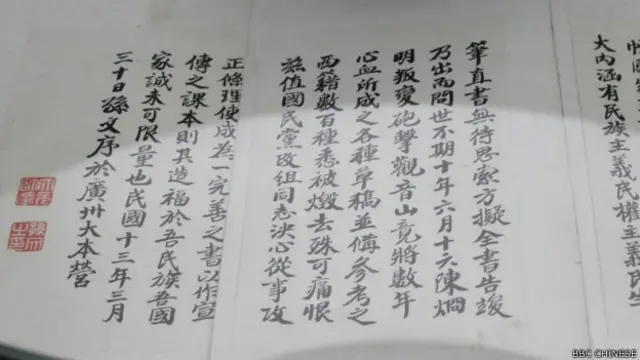 大內涵有民族主義民權主義民生
筆直書無待思索方擬全書告竣
乃出而問世不期十年六月十六陳烱
明叛變砲擊觀音山竟將數年
心血所成之各種草稿並備參考之
西籍數百種悉被燬去殊可痛恨
茲值國民黨改組同志決心從事攻
正條理使成為一完善之書以作宣
傳之課本則其造福於吾民族吾國
家誠未可限量也民國十三年三月
三十日孫文序於廣州大本營
孫文之印
BBC CHINESE